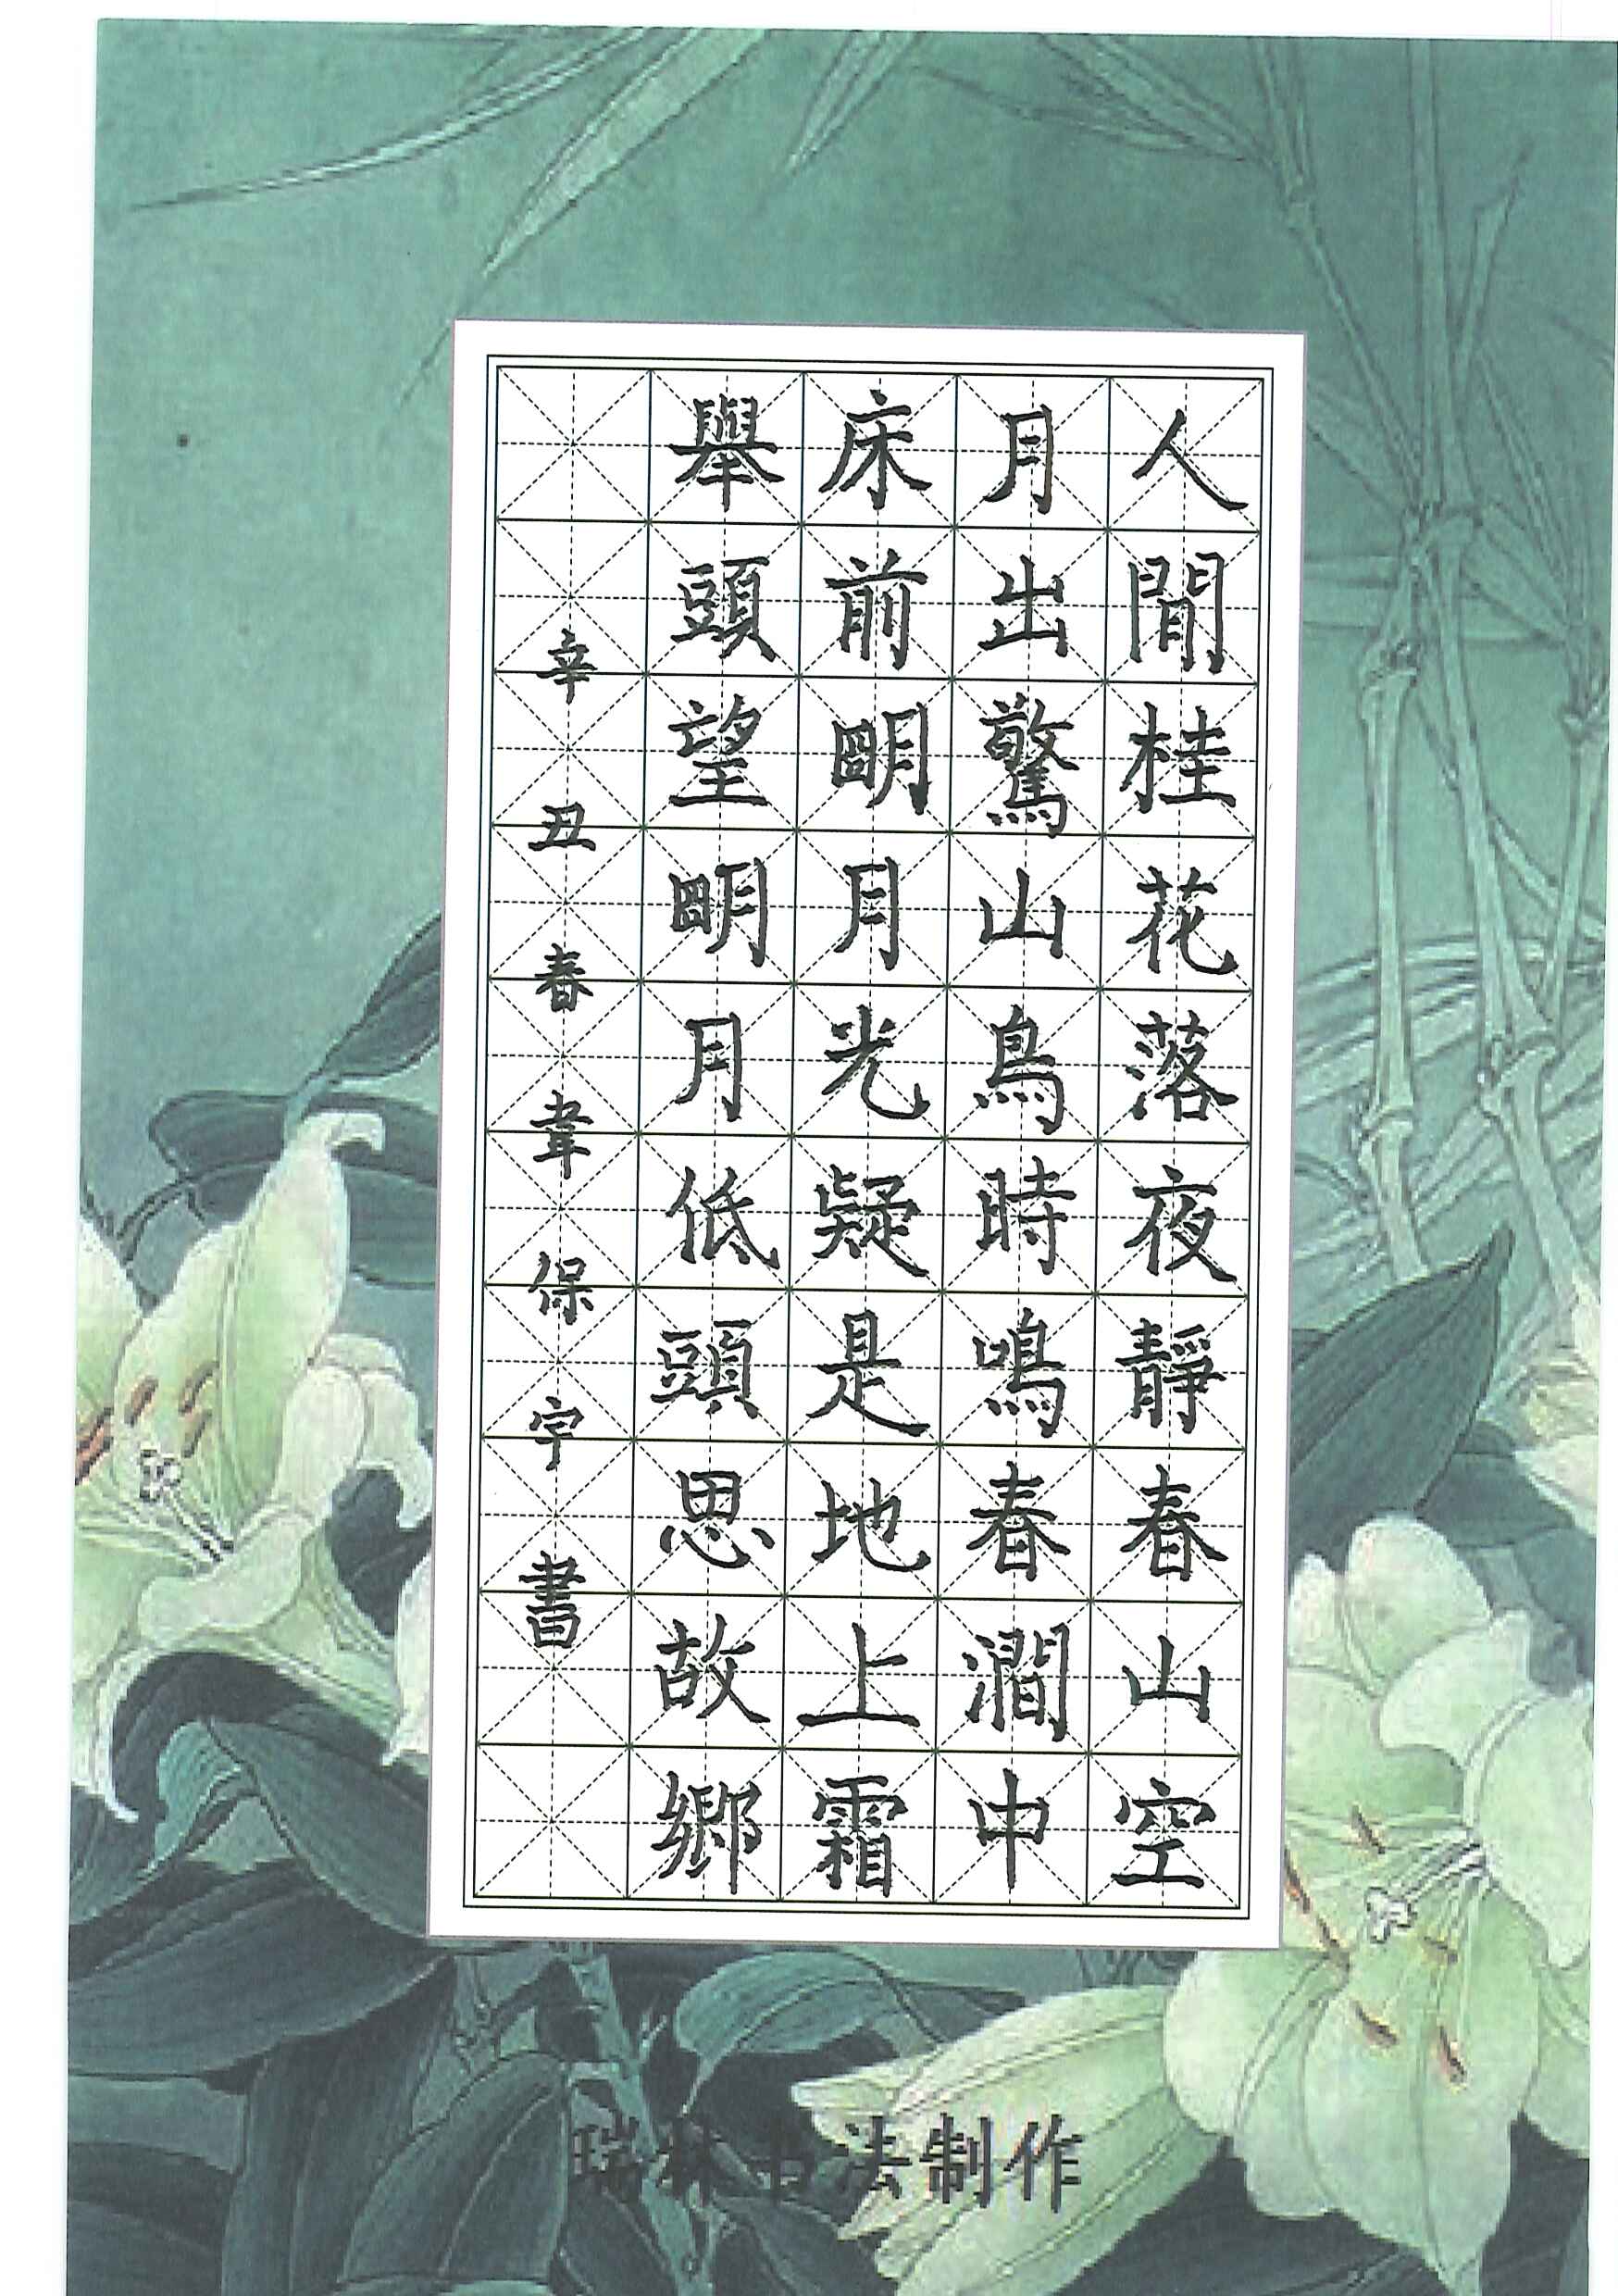 人閒桂花落夜靜春山空
月出驚山鳥時鳴春澗中
床前朙月光疑是地上霜
舉頭望朙月低頭思故鄉
辛丑春韋保宇書
瑞林书法制作